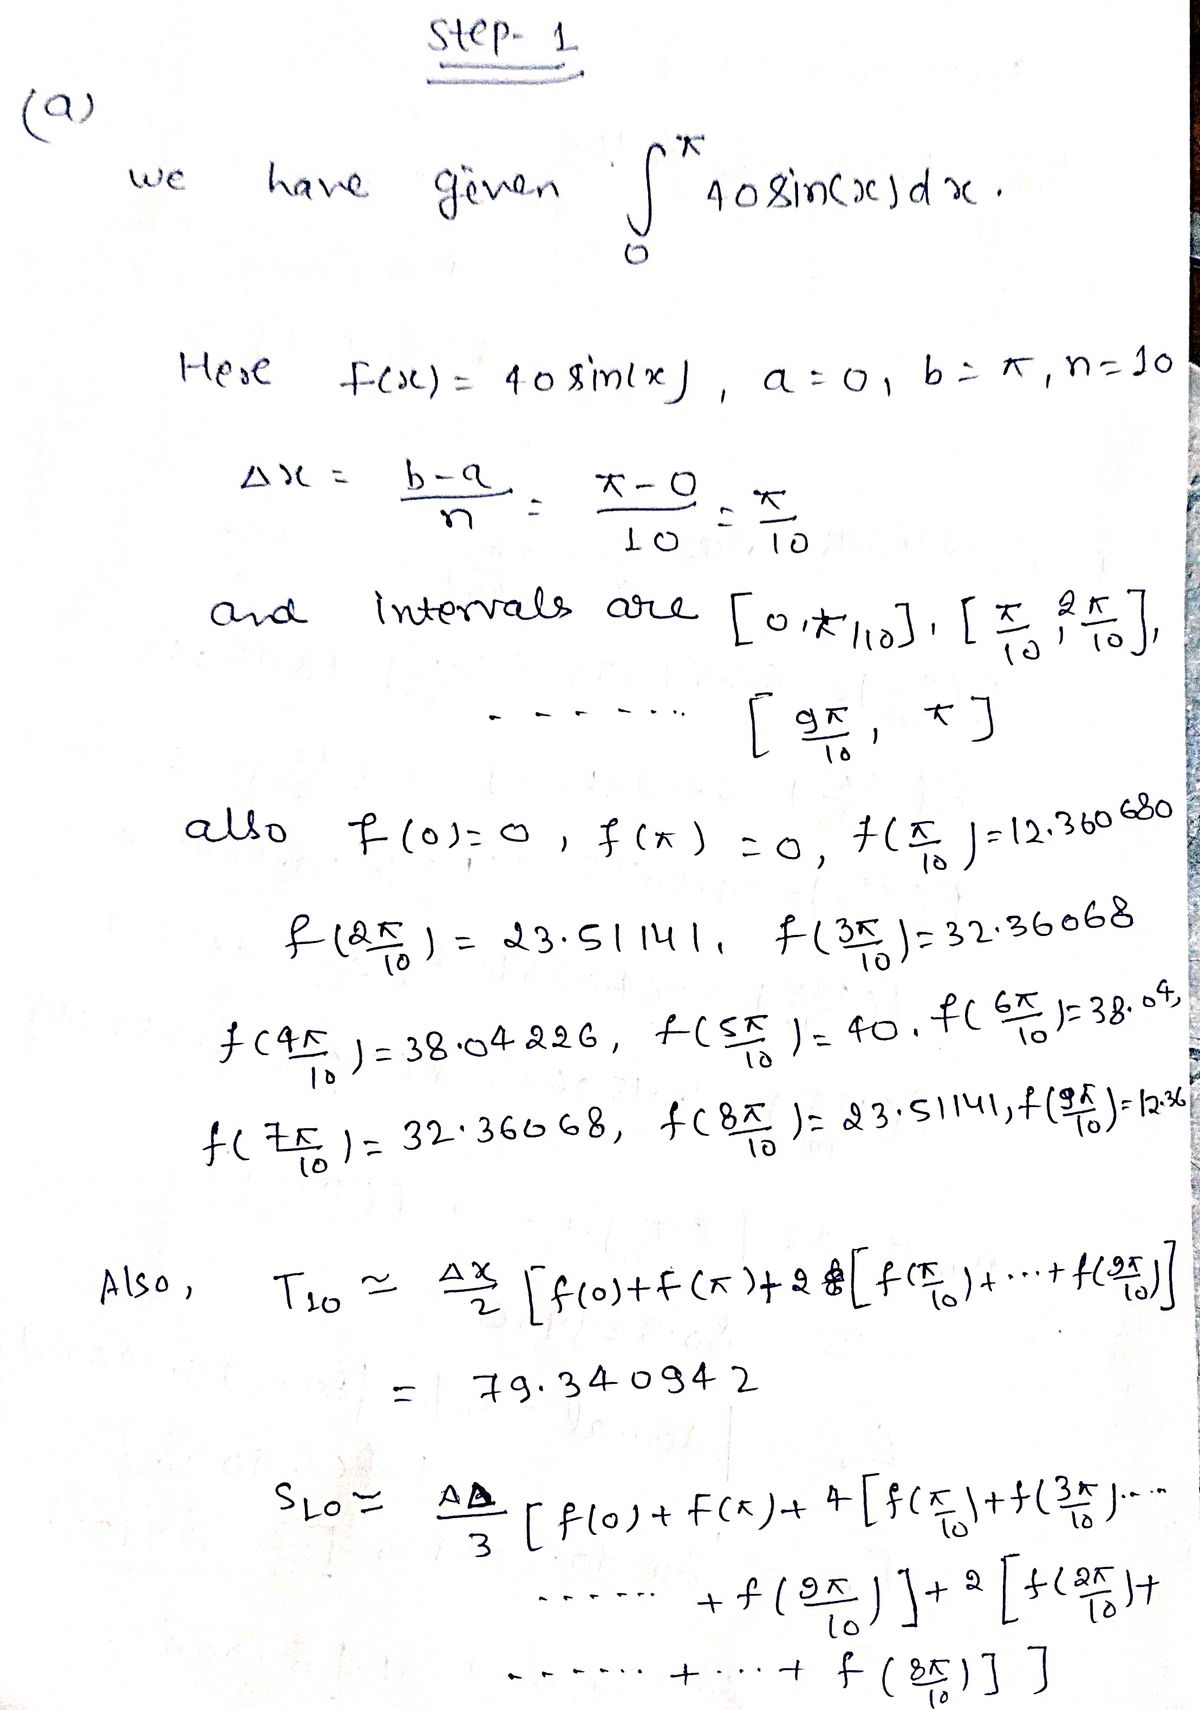 Step-1
(a)
we have given ∫₀^π 40sin(x)dx.
Here f(x) = 40 sin(x), a=0, b=π, n=10
Δx = b-a/n = π-0/10 = π/10
and intervals are [0,π/10], [π/10, 2π/10],
------... [9π/10, π]
also f(0)=0, f(π)=0, f(π/10)=12.360680
f(2π/10) = 23.51141, f(3π/10)=32.36068
f(4π/10)=38.04226, f(5π/10)=40. f(6π/10)=38.04,
f(7π/10)= 32.36068, f(8π/10)= 23.51141, f(9π/10)=12.36
Also, T10 ≃ Δx/2 [f(0)+f(π)+2[f(π/10)+...+f(9π/10)]
= 79.340942
S10 ≃ Δ/3 [f(0)+f(π)+4[f(π/10)+f(3π/10)....
------... +f(9π/10)]+2[f(2π/10)+
------... +...+ f(8π/10)]]